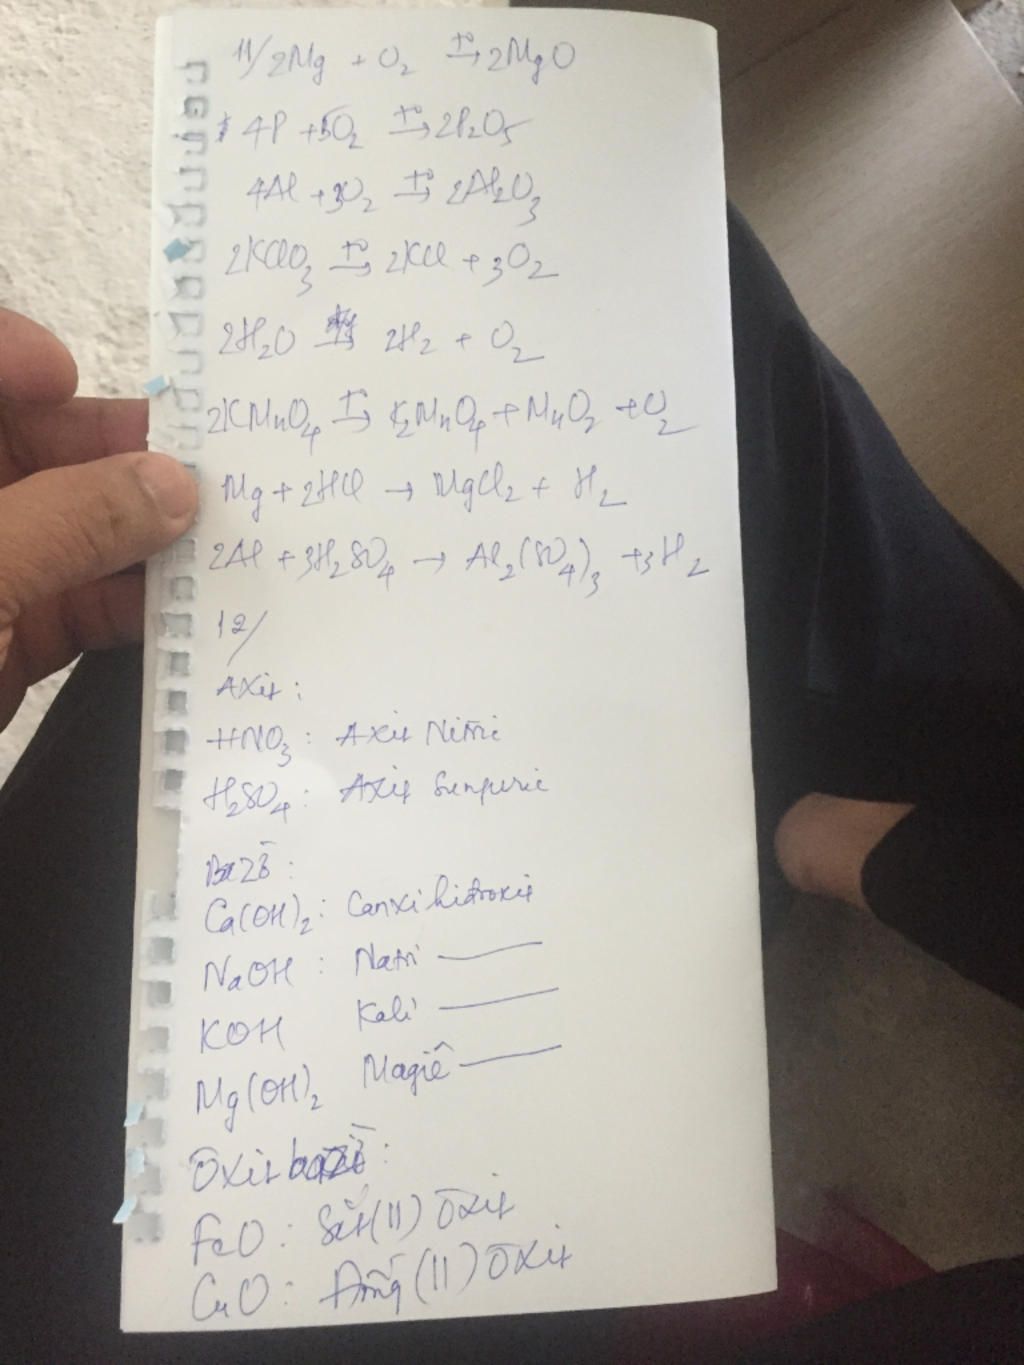 11/ 2Mg + O2 t°→ 2MgO
4P + 5O2 t°→ 2P2O5
4Al + 3O2 t°→ 2Al2O3
2KClO3 t°→ 2KCl + 3O2
2H2O → 2H2 + O2
2KMnO4 t°→ K2MnO4 + MnO2 + O2
Mg + 2HCl → MgCl2 + H2
2Al + 3H2SO4 → Al2(SO4)3 + 3H2
12/
Axit:
HNO3: Axit Nitric
H2SO4: Axit Sunfuric
Bazơ:
Ca(OH)2: Canxi hidroxit
NaOH : Natri —
KOH Kali —
Mg(OH)2 Magiê —
Oxit bazơ:
FeO: Sắt (II) Oxit
CuO: Đồng (II) Oxit